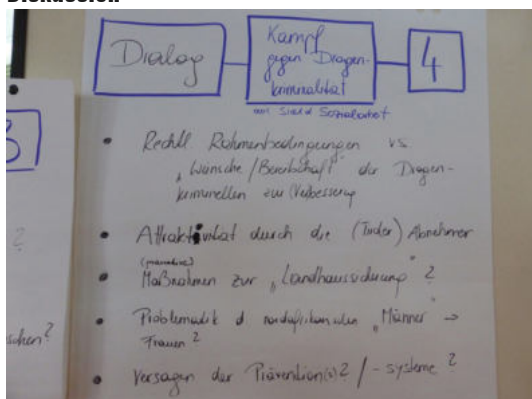 Diskussion
Dialog
Kampf
gegen Drogen-
kriminalität
4
Sozialarbeit
3
• Rechtl Rahmenbedingungen vs
"Wünsche / Bereitschaft" der Drogen-
kriminellen zur Verbesserung
• Attraktivität durch die (Kinder) Abnehmer
• Maßnahmen zur "Landhaussicherung" ?
• Problematik d nordafrikanischen "Männer" →
Frauen ?
• Versagen der Prävention(s)? / -systeme ?
?
schen?